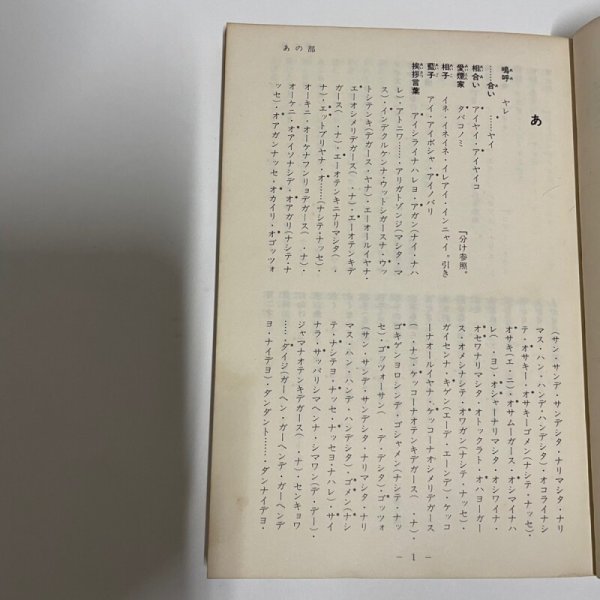 あの部
あ
嗚呼 ヤレ
……合い ……ヤイ
相合い アイヤイ・アイヤイコ
愛煙家 タバコノミ
相子 イネ・イネイネ・イレアイ・インニャイ。引き『分け参照。
藍子 アイ・アイボシャ・アイノバリ
挨拶言葉 アイシライナハレヨ・アガン(ナイ・ナハ
レ)・アトニワ……・アリガトゾンジ(マシタ・マ
ス)・インデクルケンナ・ウットシガースナ・ウッ
トシテンキ(デガース・ヤナ)・エーオールイヤナ・
エーオシメリデガース(・ナ)・エーオテンキデ
ガース(・ナ)・エーオテンキニナリマシタ(・
ナ)・エットブリヤナ・オ……(ナシテ・ナッセ)・
オーキニ・オーケナフンリョデガース(・ナ)・
オーケニ・オアイソナシデ・オアガリ(ナシテ・ナ
ッセ)・オアガンナッセ・オカイリ・オゴッツォ
(サン・サンデ・サンデシタ・ナリマシタ・ナリ
マス・ハン・ハンデ・ハンデシタ)・オコライナシ
テ・オサキー・オサキーゴメン(ナシテ・ナッセ)・
オサキ(エ・ニ)・オサムーガース・オシマイナハ
レ(・ヨ)・オシャーナリマシタ・オショウシイナ・
オセワナリマシタ・オトックラト・オハヨーガー
ス・オメシナシテ・オワガン(ナシテ・ナッセ)・
ガイセンナ・キゲン(エーデ・エーンデ)・ケッコ
ーナオールイヤナ・ケッコーナオシメリデガース
(・ナ)・ケッコーナオテンキデガース(・ナ)・
ゴキゲンヨロシンデ・ゴシャメン(ナシテ・ナッ
セ)・ゴッツォーサン(・デ・デシタ)・ゴッツォ
(サン・サンデ・サンデシタ・ナリマシタ・ナリ
マス・ハン・ハンデ・ハンデシタ)・ゴメン(ナシ
テ・ナシテヨ・ナッセ・ナッセヨ・ナハレ)・サイ
ナラ・サッパリシマヘンナ・シマワン(デ・デー)・
ジャマナオテンキデガース(・ナ)・センキョワ
……・ダイジ(ガーヘン・ガーヘンデ・ガーヘンデ
ヨ・ナイデヨ)・ダンダント……・ダンナイデヨ・
— 1 —